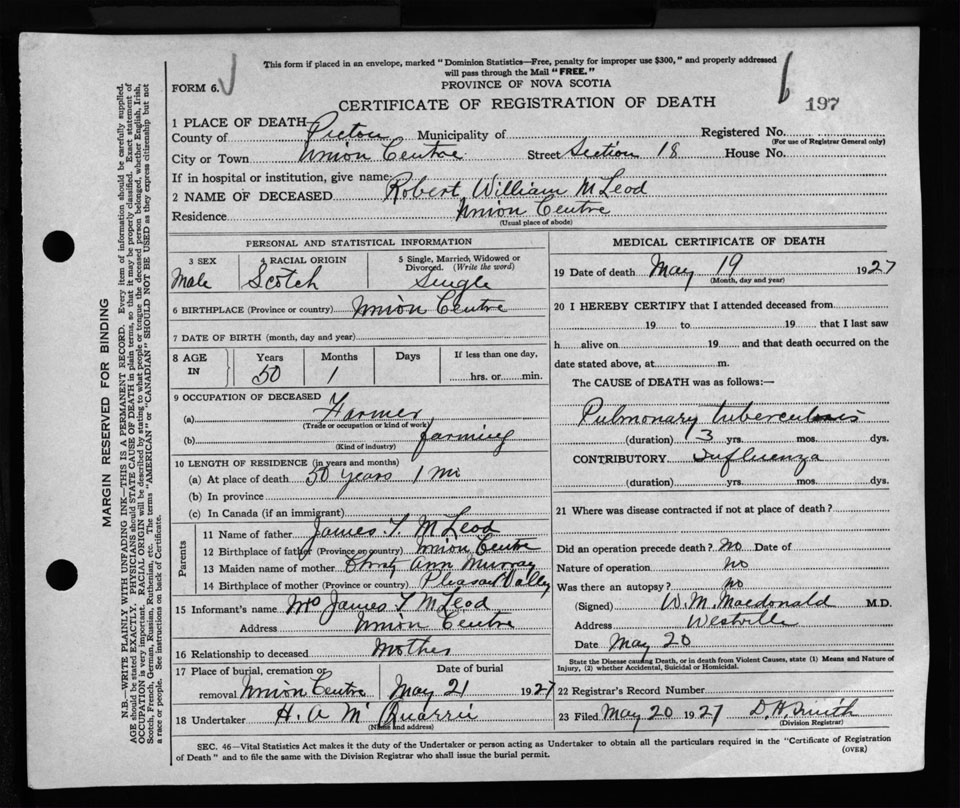 This form if placed in an envelope, marked "Dominion Statistics—Free, penalty for improper use $300," and properly addressed
will pass through the Mail "FREE."
FORM 6.
PROVINCE OF NOVA SCOTIA
CERTIFICATE OF REGISTRATION OF DEATH
197
1 PLACE OF DEATH
County of Pictou Municipality of Registered No.
(For use of Registrar General only)
City or Town Union Centre Street Section 18 House No.
If in hospital or institution, give name:
2 NAME OF DECEASED Robert William McLeod
Residence Union Centre
(Usual place of abode)
PERSONAL AND STATISTICAL INFORMATION
3 SEX 4 RACIAL ORIGIN 5 Single, Married, Widowed or
Divorced. (Write the word)
Male Scotch Single
6 BIRTHPLACE (Province or country) Union Centre
7 DATE OF BIRTH (month, day and year)
8 AGE IN Years Months Days If less than one day,
50 1 hrs. or min.
9 OCCUPATION OF DECEASED
(a) Farmer
(Trade or occupation or kind of work)
(b) farming
(Kind of industry)
10 LENGTH OF RESIDENCE (in years and months)
(a) At place of death 50 years 1 mo
(b) In province
(c) In Canada (if an immigrant)
Parents
11 Name of father James T. McLeod
12 Birthplace of father (Province or country) Union Centre
13 Maiden name of mother Christy Ann Murray
14 Birthplace of mother (Province or country) Pleasant Valley
15 Informant's name Mrs James T McLeod
Address Union Centre
16 Relationship to deceased Mother
17 Place of burial, cremation or Date of burial
removal Union Centre May 21 1927
18 Undertaker H. A McQuarrie
(Name and address)
MEDICAL CERTIFICATE OF DEATH
19 Date of death May 19 1927
(Month, day and year)
20 I HEREBY CERTIFY that I attended deceased from
19 to 19 that I last saw
h alive on 19 and that death occurred on the
date stated above, at m.
The CAUSE of DEATH was as follows:—
Pulmonary tuberculosis
(duration) 3 yrs. mos. dys.
CONTRIBUTORY Influenza
(duration) yrs. mos. dys.
21 Where was disease contracted if not at place of death?
Did an operation precede death? No Date of
Nature of operation no
Was there an autopsy? no
(Signed) W. M. Macdonald M.D.
Address Westville
Date May 20
State the Disease causing Death, or in death from Violent Causes, state (1) Means and Nature of
Injury, (2) whether Accidental, Suicidal or Homicidal.
22 Registrar's Record Number
23 Filed May 20 1927 D. H. Smith
(Division Registrar)
SEC. 46—Vital Statistics Act makes it the duty of the Undertaker or person acting as Undertaker to obtain all the particulars required in the "Certificate of Registration
of Death" and to file the same with the Division Registrar who shall issue the burial permit.
(OVER)
MARGIN RESERVED FOR BINDING
N.B.—WRITE PLAINLY WITH UNFADING INK—THIS IS A PERMANENT RECORD. Every item of information should be carefully supplied.
AGE should be stated EXACTLY. PHYSICIANS should STATE CAUSE OF DEATH in plain terms, so that it may be properly classified. Exact statement of
OCCUPATION is very important. RACIAL ORIGIN will be described by stating to what people or tongue the deceased person belonged, whether English, Irish,
Scotch, French, German, Russian, Ruthenian, etc. The terms "AMERICAN" or "CANADIAN" SHOULD NOT BE USED as they express citizenship but not
a race or people. See instructions on back of Certificate.